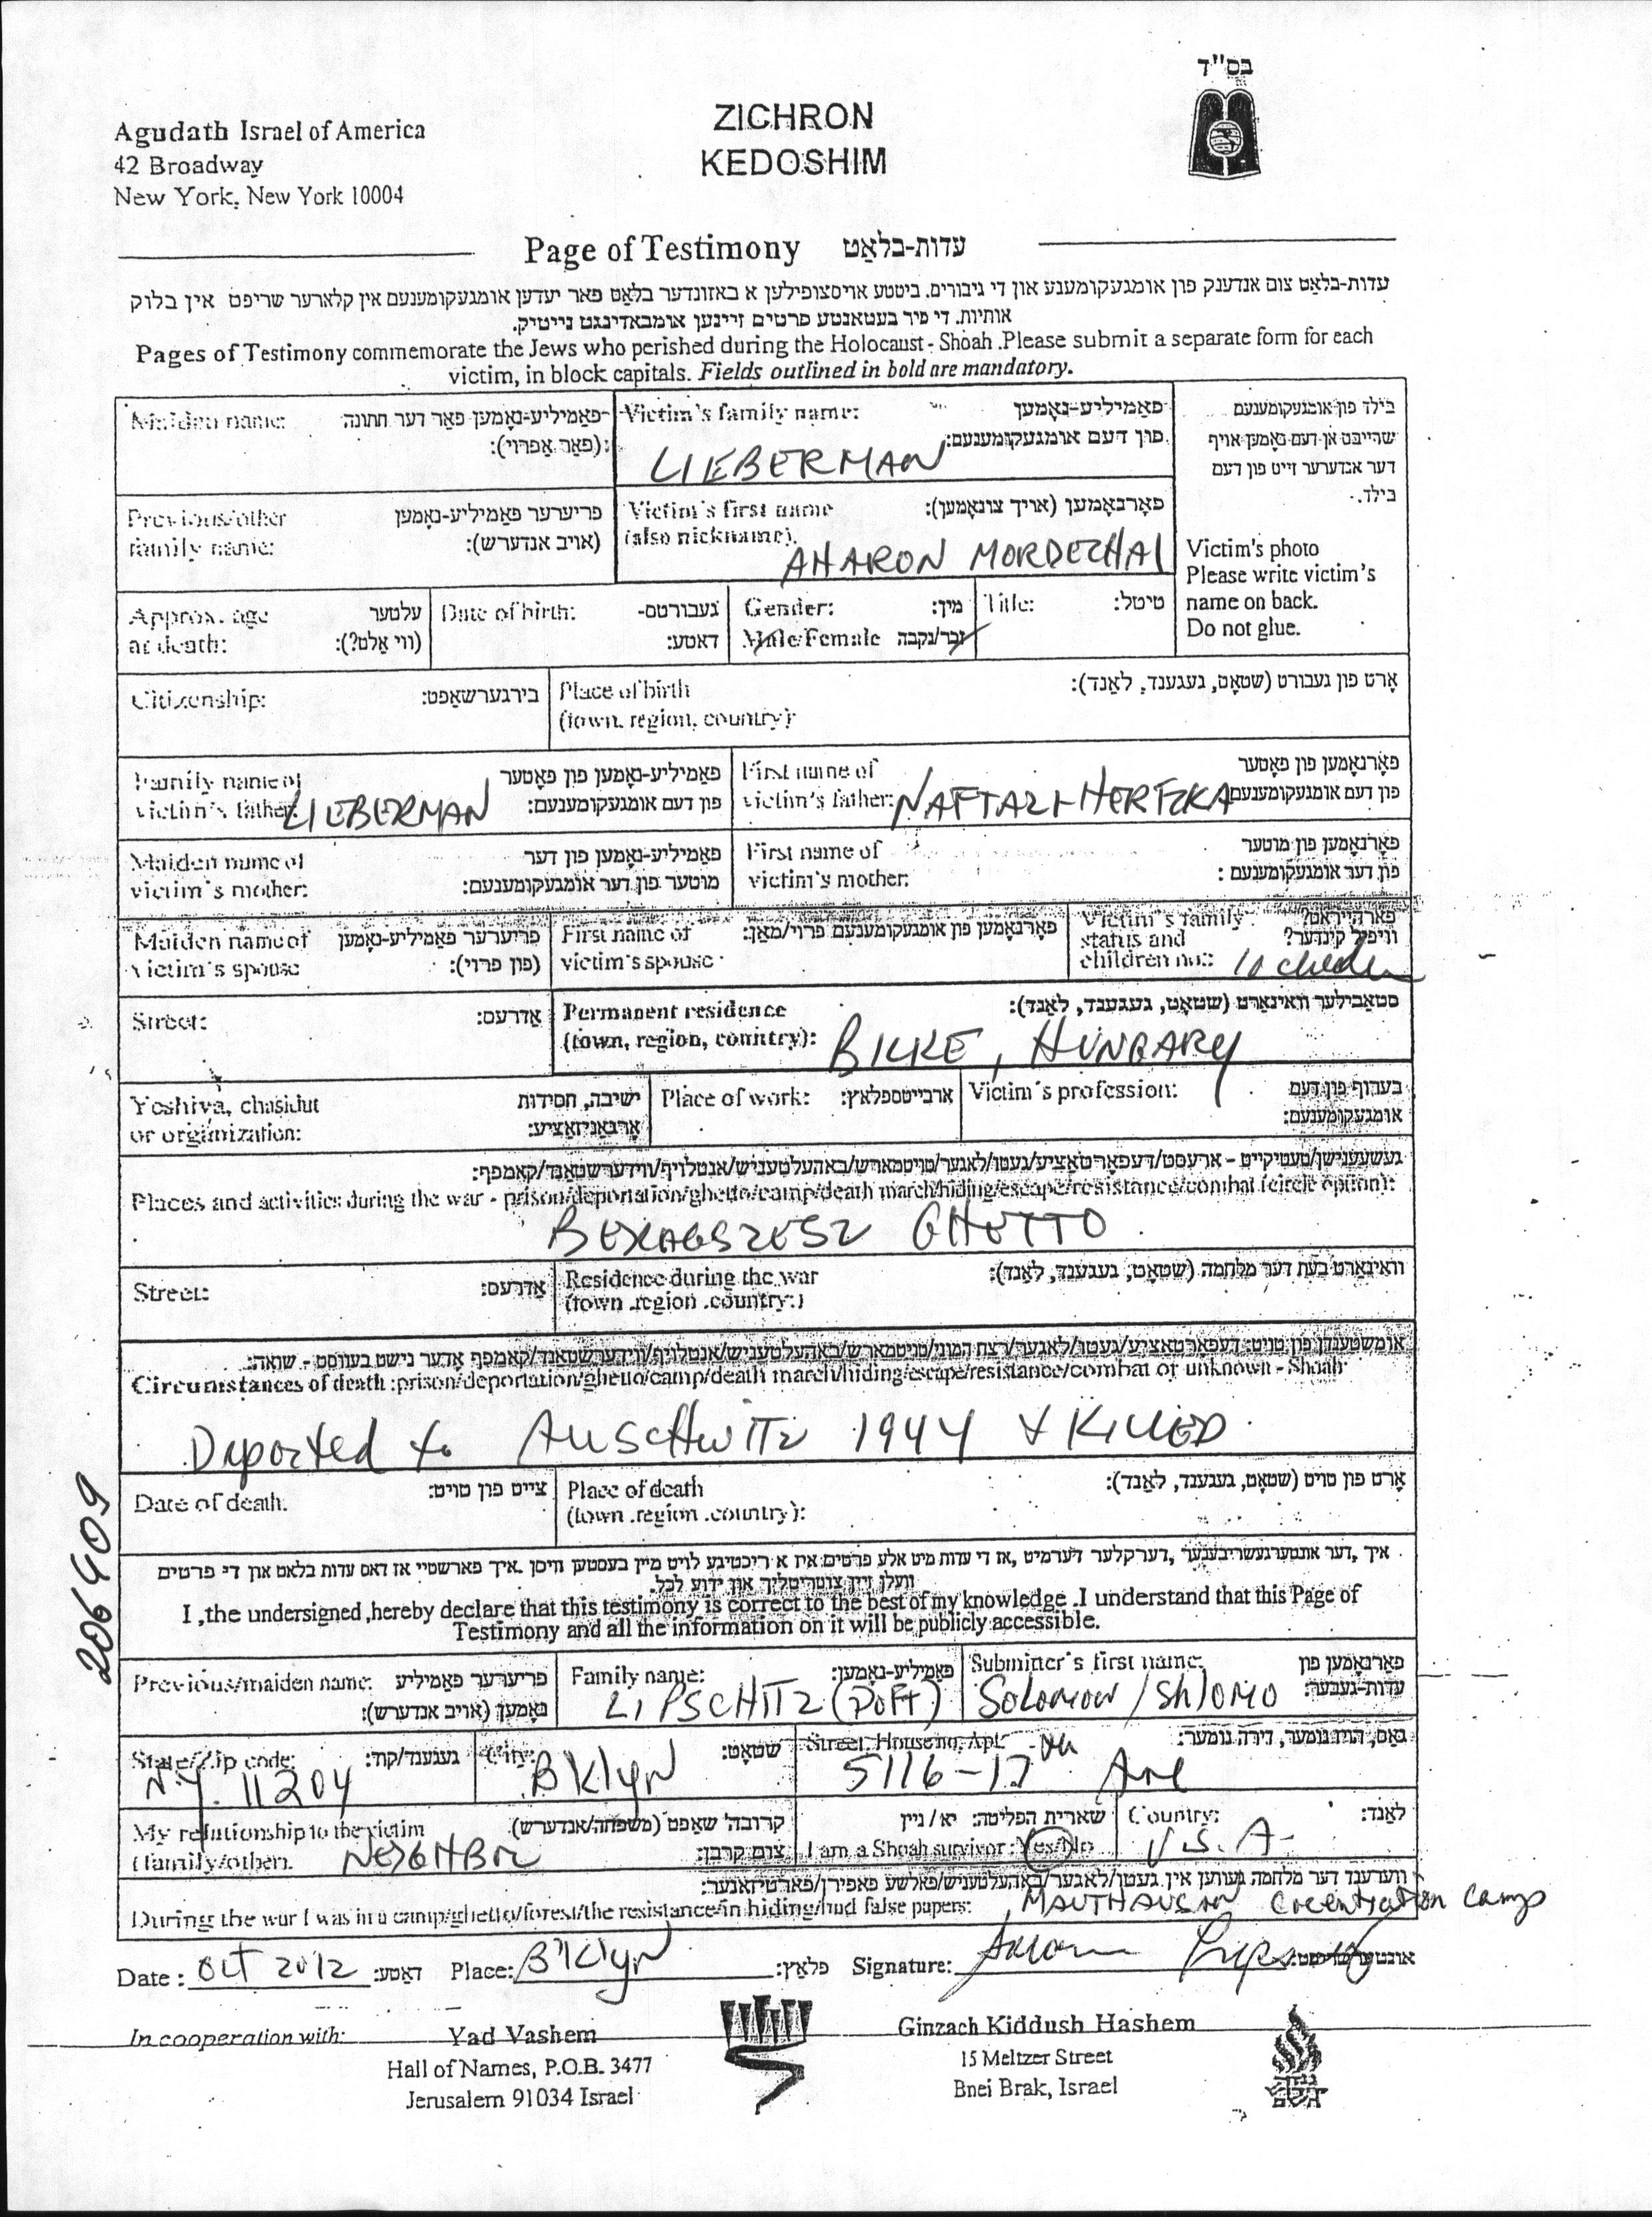 בס"ד
Agudath Israel of America
42 Broadway
New York, New York 10004
ZICHRON
KEDOSHIM
Page of Testimony עדות-בלאַט
עדות-בלאַט צום אנדענק פון אומגעקומענע און די גיבורים. ביטע אויסצופילען א באזונדער בלאַט פאר יעדען אומגעקומענעם אין קלארער שריפט אין בלוק
אותיות. די פיר בעטאנטע פרטים זיינען אומבאדינגט נייטיק.
Pages of Testimony commemorate the Jews who perished during the Holocaust - Shoah .Please submit a separate form for each
victim, in block capitals. Fields outlined in bold are mandatory.
Maiden name: פאַמיליע-נאָמען פאַר דער חתונה
(פאַר אַפרוי):
Victim's family name: פאַמיליע-נאָמען
פון דעם אומגעקומענעם:
LIEBERMAN
בילד פון אומגעקומענעם
שרייבט אן דעם נאָמען אויף
דער אנדערער זייט פון דעם
בילד.
Victim's photo
Please write victim's
name on back.
Do not glue.
Previous/other פריערער פאַמיליע-נאָמען
family name: (אויב אנדערש):
Victim's first name פאָרנאָמען (אויך צונאָמען):
(also nickname).
AHARON MORDECHAI
Approx. age עלטער
at death: (ווי אַלט?):
Date of birth: געבורטס-
דאַטע:
Gender: מין:
Male/Female זכר/נקבה
Title: טיטל:
Citizenship: בירגערשאַפט:
Place of birth אָרט פון געבורט (שטאָט, געגענד, לאַנד):
(town, region, country):
Family name of פאַמיליע-נאָמען פון פאָטער
victim's father: פון דעם אומגעקומענעם:
LIEBERMAN
First name of פאָרנאָמען פון פאָטער
victim's father: פון דעם אומגעקומענעם
NAFTALI HERTZKA
Maiden name of פאַמיליע-נאָמען פון דער
victim's mother: מוטער פון דער אומגעקומענעם:
First name of פאָרנאָמען פון מוטער
victim's mother: פון דער אומגעקומענעם :
Maiden name of פריערער פאַמיליע-נאָמען
victim's spouse (פון פרוי):
First name of פאָרנאָמען פון אומגעקומענעם פרוי/מאַן:
victim's spouse
Victim's family פארהייראט?
status and וויפיל קינדער?
children no.: 10 children
Street: אַדרעס:
Permanent residence סטאַבילער וואוינאָרט (שטאָט, געגענד, לאַנד):
(town, region, country):
BILKE, HUNGARY
Yeshiva, chasidut ישיבה, חסידות
or organization: אָרגאַניזאַציע:
Place of work: ארבייטספלאץ:
Victim's profession: בערוף פון דעם
אומגעקומענעם:
געשעענישן/טעטיקייט - ארעסט/דעפאָרטאַציע/געטו/לאגער/טויטמארש/באהעלטעניש/אנטלויף/ווידערשטאַנד/קאמפף:
Places and activities during the war - prison/deportation/ghetto/camp/death march/hiding/escape/resistance/combat (circle option):
BERAGSZESZ GHETTO
Street: אַדרעס:
Residence during the war וואוינאָרט בעת דער מלחמה (שטאָט, געגענד, לאַנד):
(town .region .country:)
אומשטענדן פון טויט: דעפאָרטאַציע/געטו/לאגער/רצח המוני/טויטמארש/באהעלטעניש/אנטלויף/ווידערשטאַנד/קאמפף אדער נישט בעוואוסט - שואה:
Circumstances of death :prison/deportation/ghetto/camp/death march/hiding/escape/resistance/combat or unknown - Shoah
Deported to AUSCHWITZ 1944 & KILLED
Date of death. צייט פון טויט:
Place of death אָרט פון טויט (שטאָט, געגענד, לאַנד):
(town .region .country):
איך ,דער אונטערגעשריבענער ,דערקלער דערמיט ,אז די עדות מיט אלע פרטים איז א ריכטיגע לויט מיין בעסטען וויסן .איך פארשטיי אז דאס עדות בלאט און די פרטים
וועלן זיין צוטריטליך און ידוע לכל.
I ,the undersigned ,hereby declare that this testimony is correct to the best of my knowledge .I understand that this Page of
Testimony and all the information on it will be publicly accessible.
206409
Previous/maiden name: פריערער פאַמיליע
נאָמען (אויב אנדערש):
Family name: פאַמיליע-נאָמען:
LIPSCHITZ (DOFT)
Submitter's first name: פאָרנאָמען פון
עדות-געבער:
Solomon / Shlomo
State/Zip code: געגענד/קוד:
N.Y. 11204
City: שטאָט:
BKlyn
Street, House no, Apt. גאס, הויז נומער, דירה נומער:
5116-17 th Ave
My relationship to the victim קרובה' שאַפט (משפחה/אנדערש)
(family/other). צום קרבן:
NEIGHBOR
שארית הפליטה: יא / ניין
I am a Shoah survivor: Yes/No
Country: לאַנד:
U.S.A.
ווערענד דער מלחמה געווען אין געטו/לאגער/באהעלטעניש/פאלשע פאפירן/פארטיזאנער:
During the war I was in a camp/ghetto/forest/the resistance/in hiding/had false papers: MAUTHAUSEN Cocentration Camp
Date : Oct 2012 דאַטע: Place: B'Klyn פלאַץ: Signature:
In cooperation with: Yad Vashem
Hall of Names, P.O.B. 3477
Jerusalem 91034 Israel
Ginzach Kiddush Hashem
15 Meltzer Street
Bnei Brak, Israel